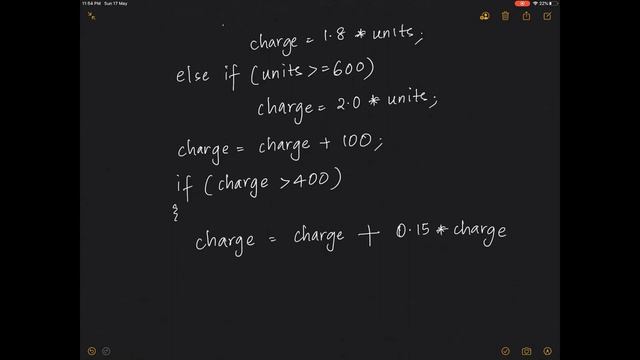 11:54 PM Sun 17 May
22%
charge = 1.8 * units;
else if (units >= 600)
charge = 2.0 * units;
charge = charge + 100;
if (charge > 400)
{
charge = charge + 0.15 * charge